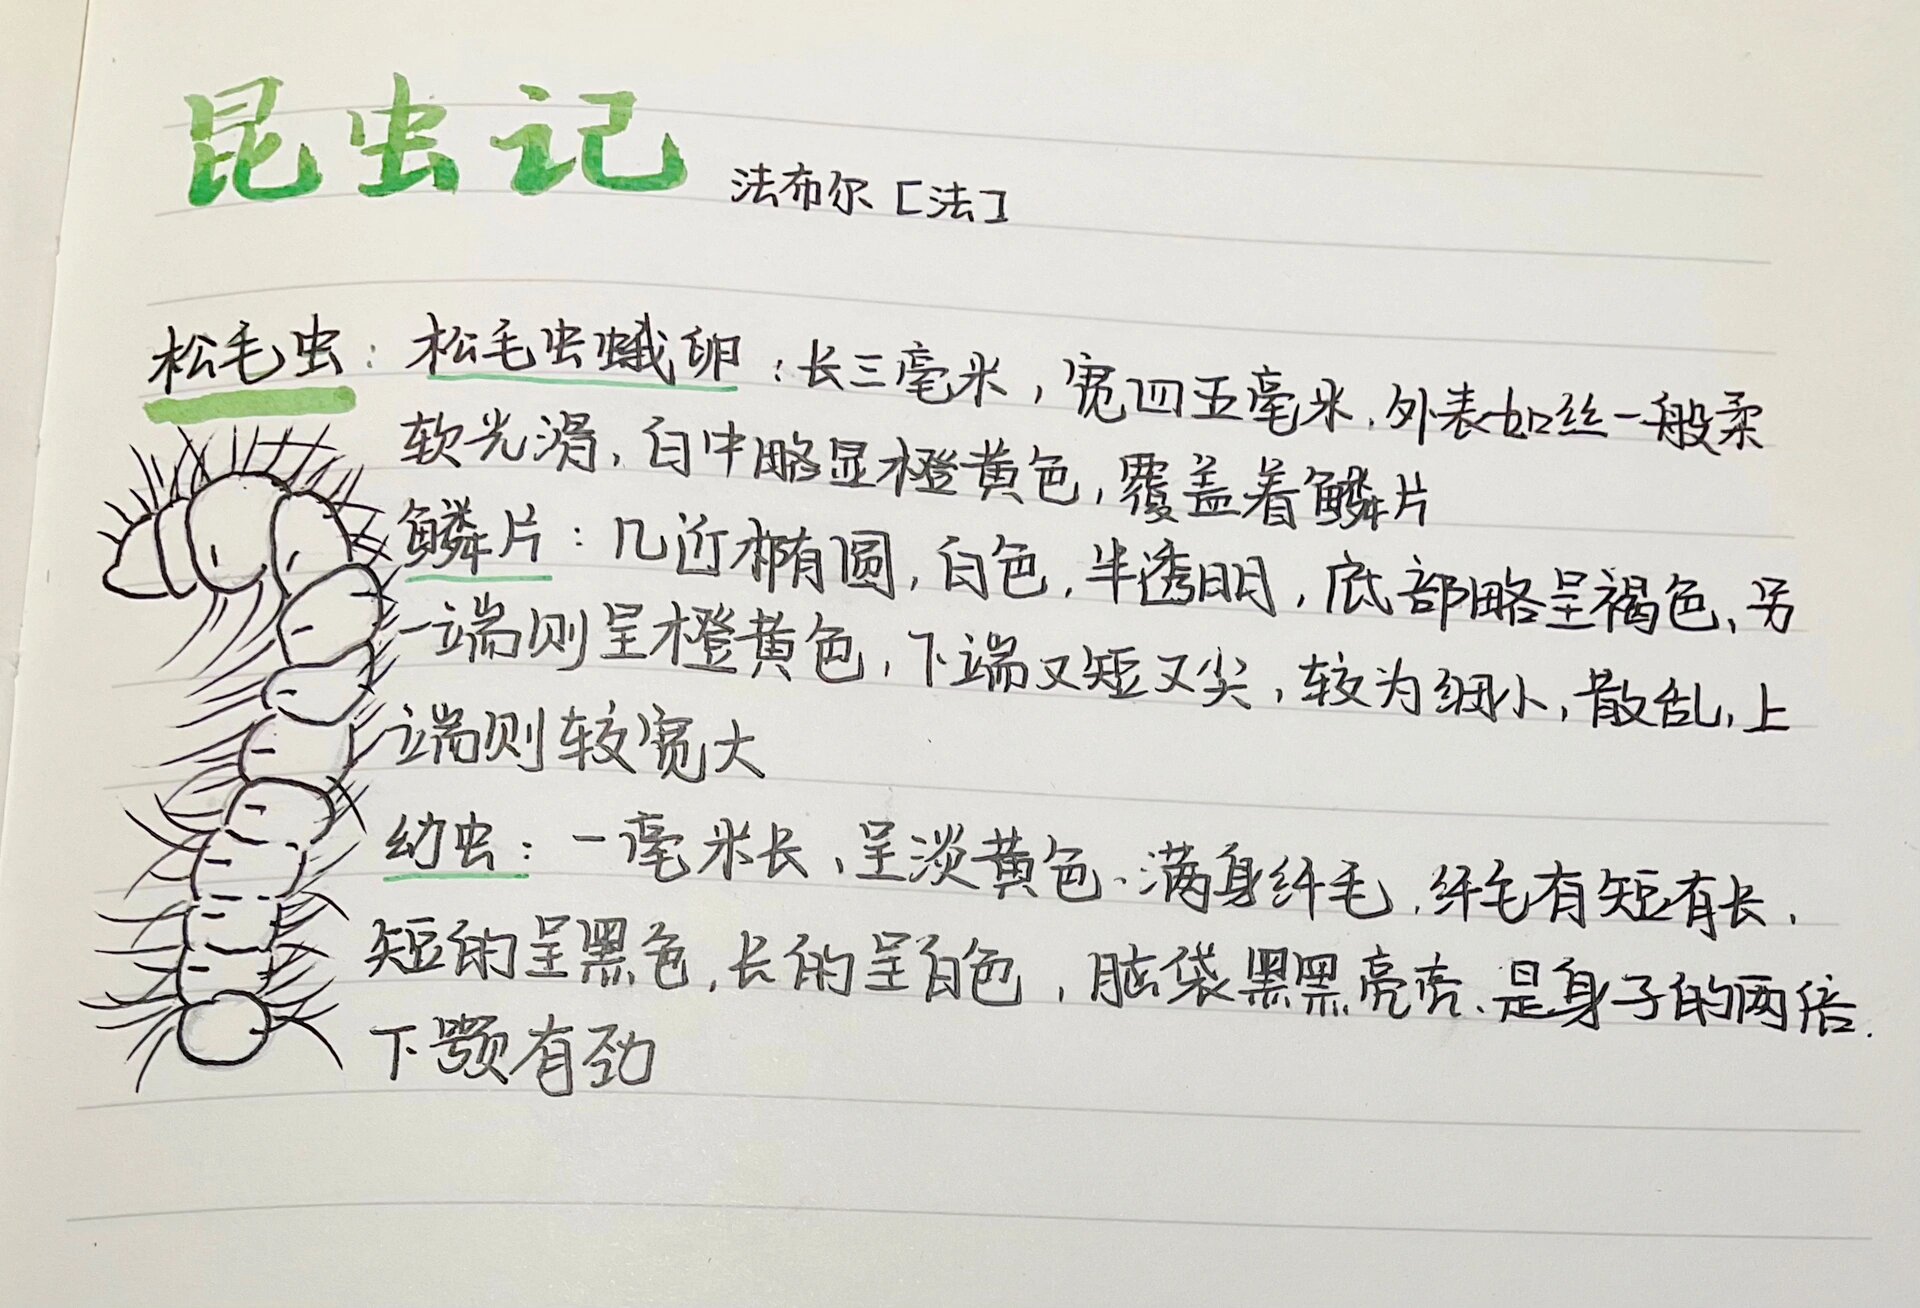 昆虫记
法布尔[法]
松毛虫：松毛虫蛾卵：长三毫米，宽四五毫米，外表如丝一般柔
软光滑，白中略显橙黄色，覆盖着鳞片
鳞片：几近椭圆，白色，半透明，底部略呈褐色，另
一端则呈橙黄色，下端又短又尖，较为细小，散乱，上
端则较宽大
幼虫：一毫米长、呈淡黄色、满身纤毛，纤毛有短有长，
短的呈黑色，长的呈白色，脑袋黑黑亮亮、是身子的两倍.
下颚有劲